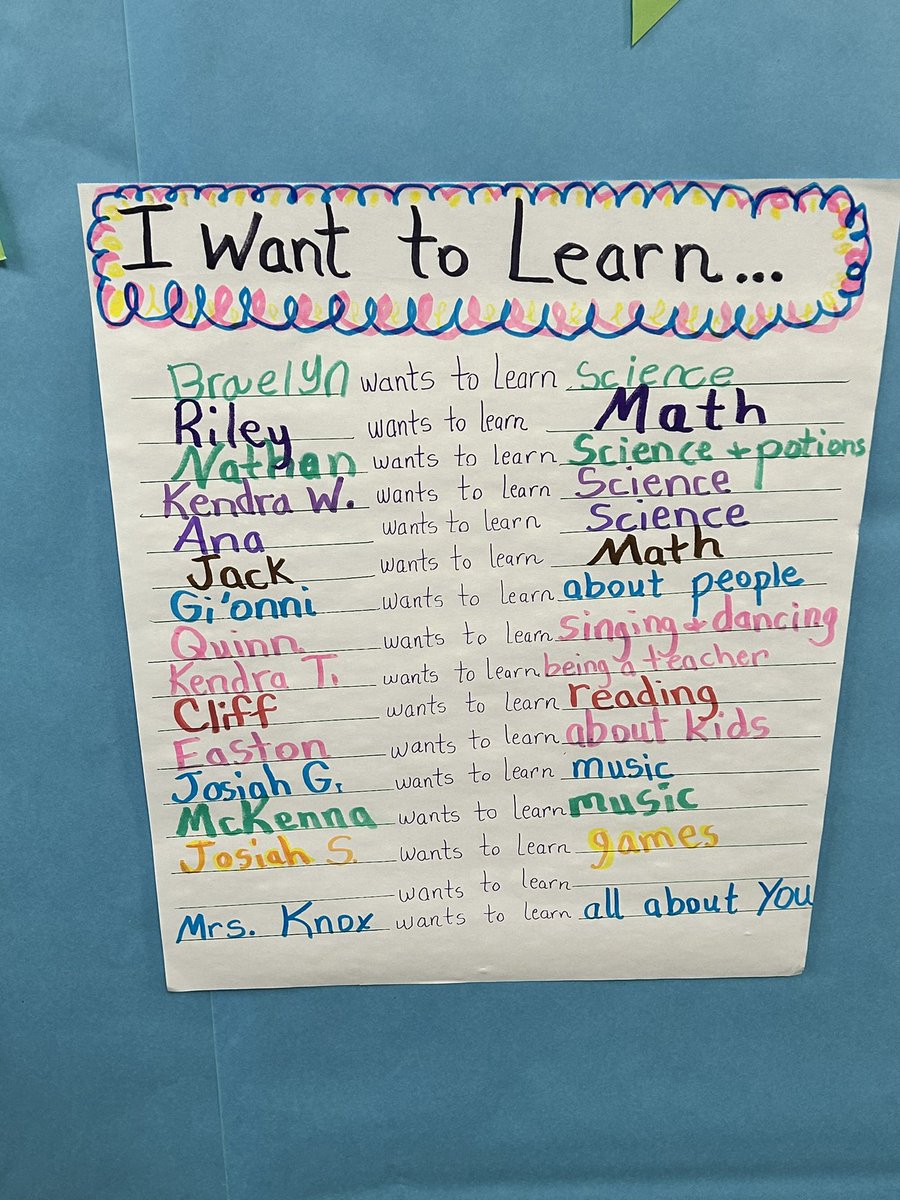 I Want to Learn...
Braelyn wants to learn Science
Riley wants to learn Math
Nathan wants to learn Science + potions
Kendra W. wants to learn Science
Ana wants to learn Science
Jack wants to learn Math
Gi'onni wants to learn about people
Quinn wants to learn singing + dancing
Kendra T. wants to learn being a teacher
Cliff wants to learn reading
Easton wants to learn about kids
Josiah G. wants to learn music
McKenna wants to learn music
Josiah S. wants to learn games
wants to learn
Mrs. Knox wants to learn all about You